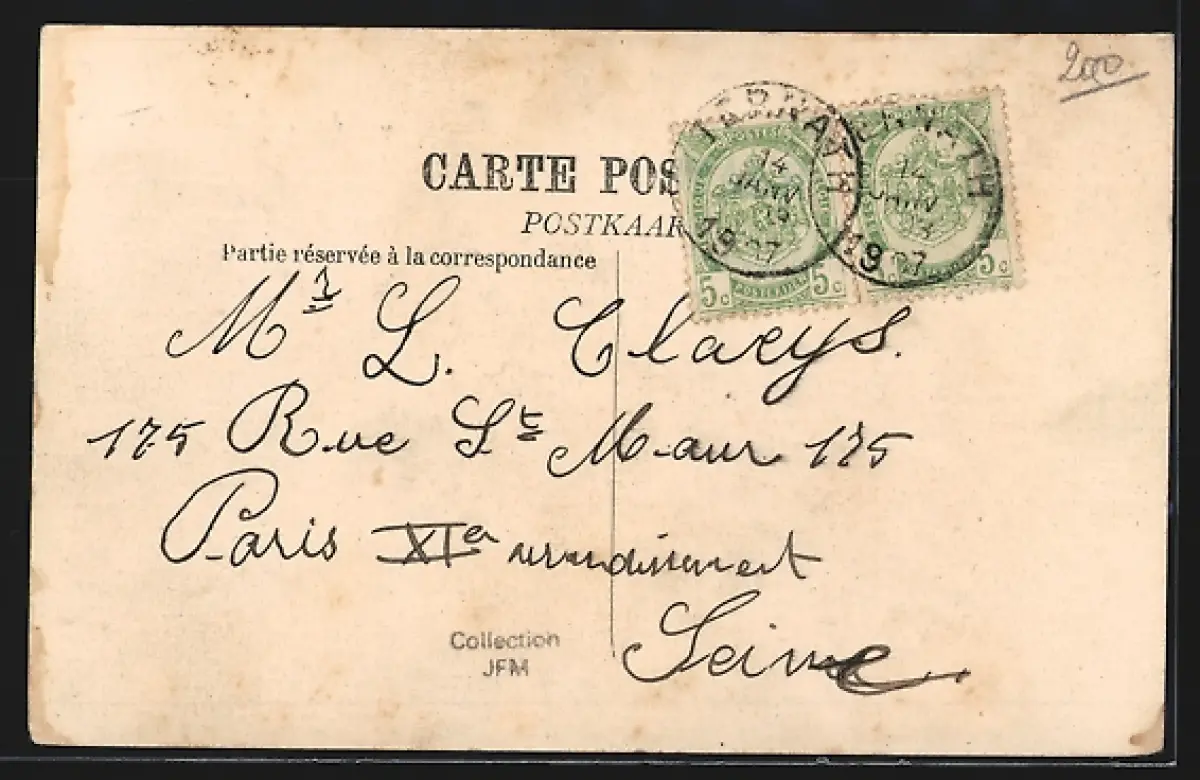 200
CARTE POS
POSTKAAR
Partie réservée à la correspondance
TERNATH
14
JANV
1907
ERNATH
14
JANV
1907
POSTERIJEN
5c 5c
5c
Mr L. Claeys.
175 Rue St Maur 175
Paris XIe arrondissement
Seine
Collection
JFM